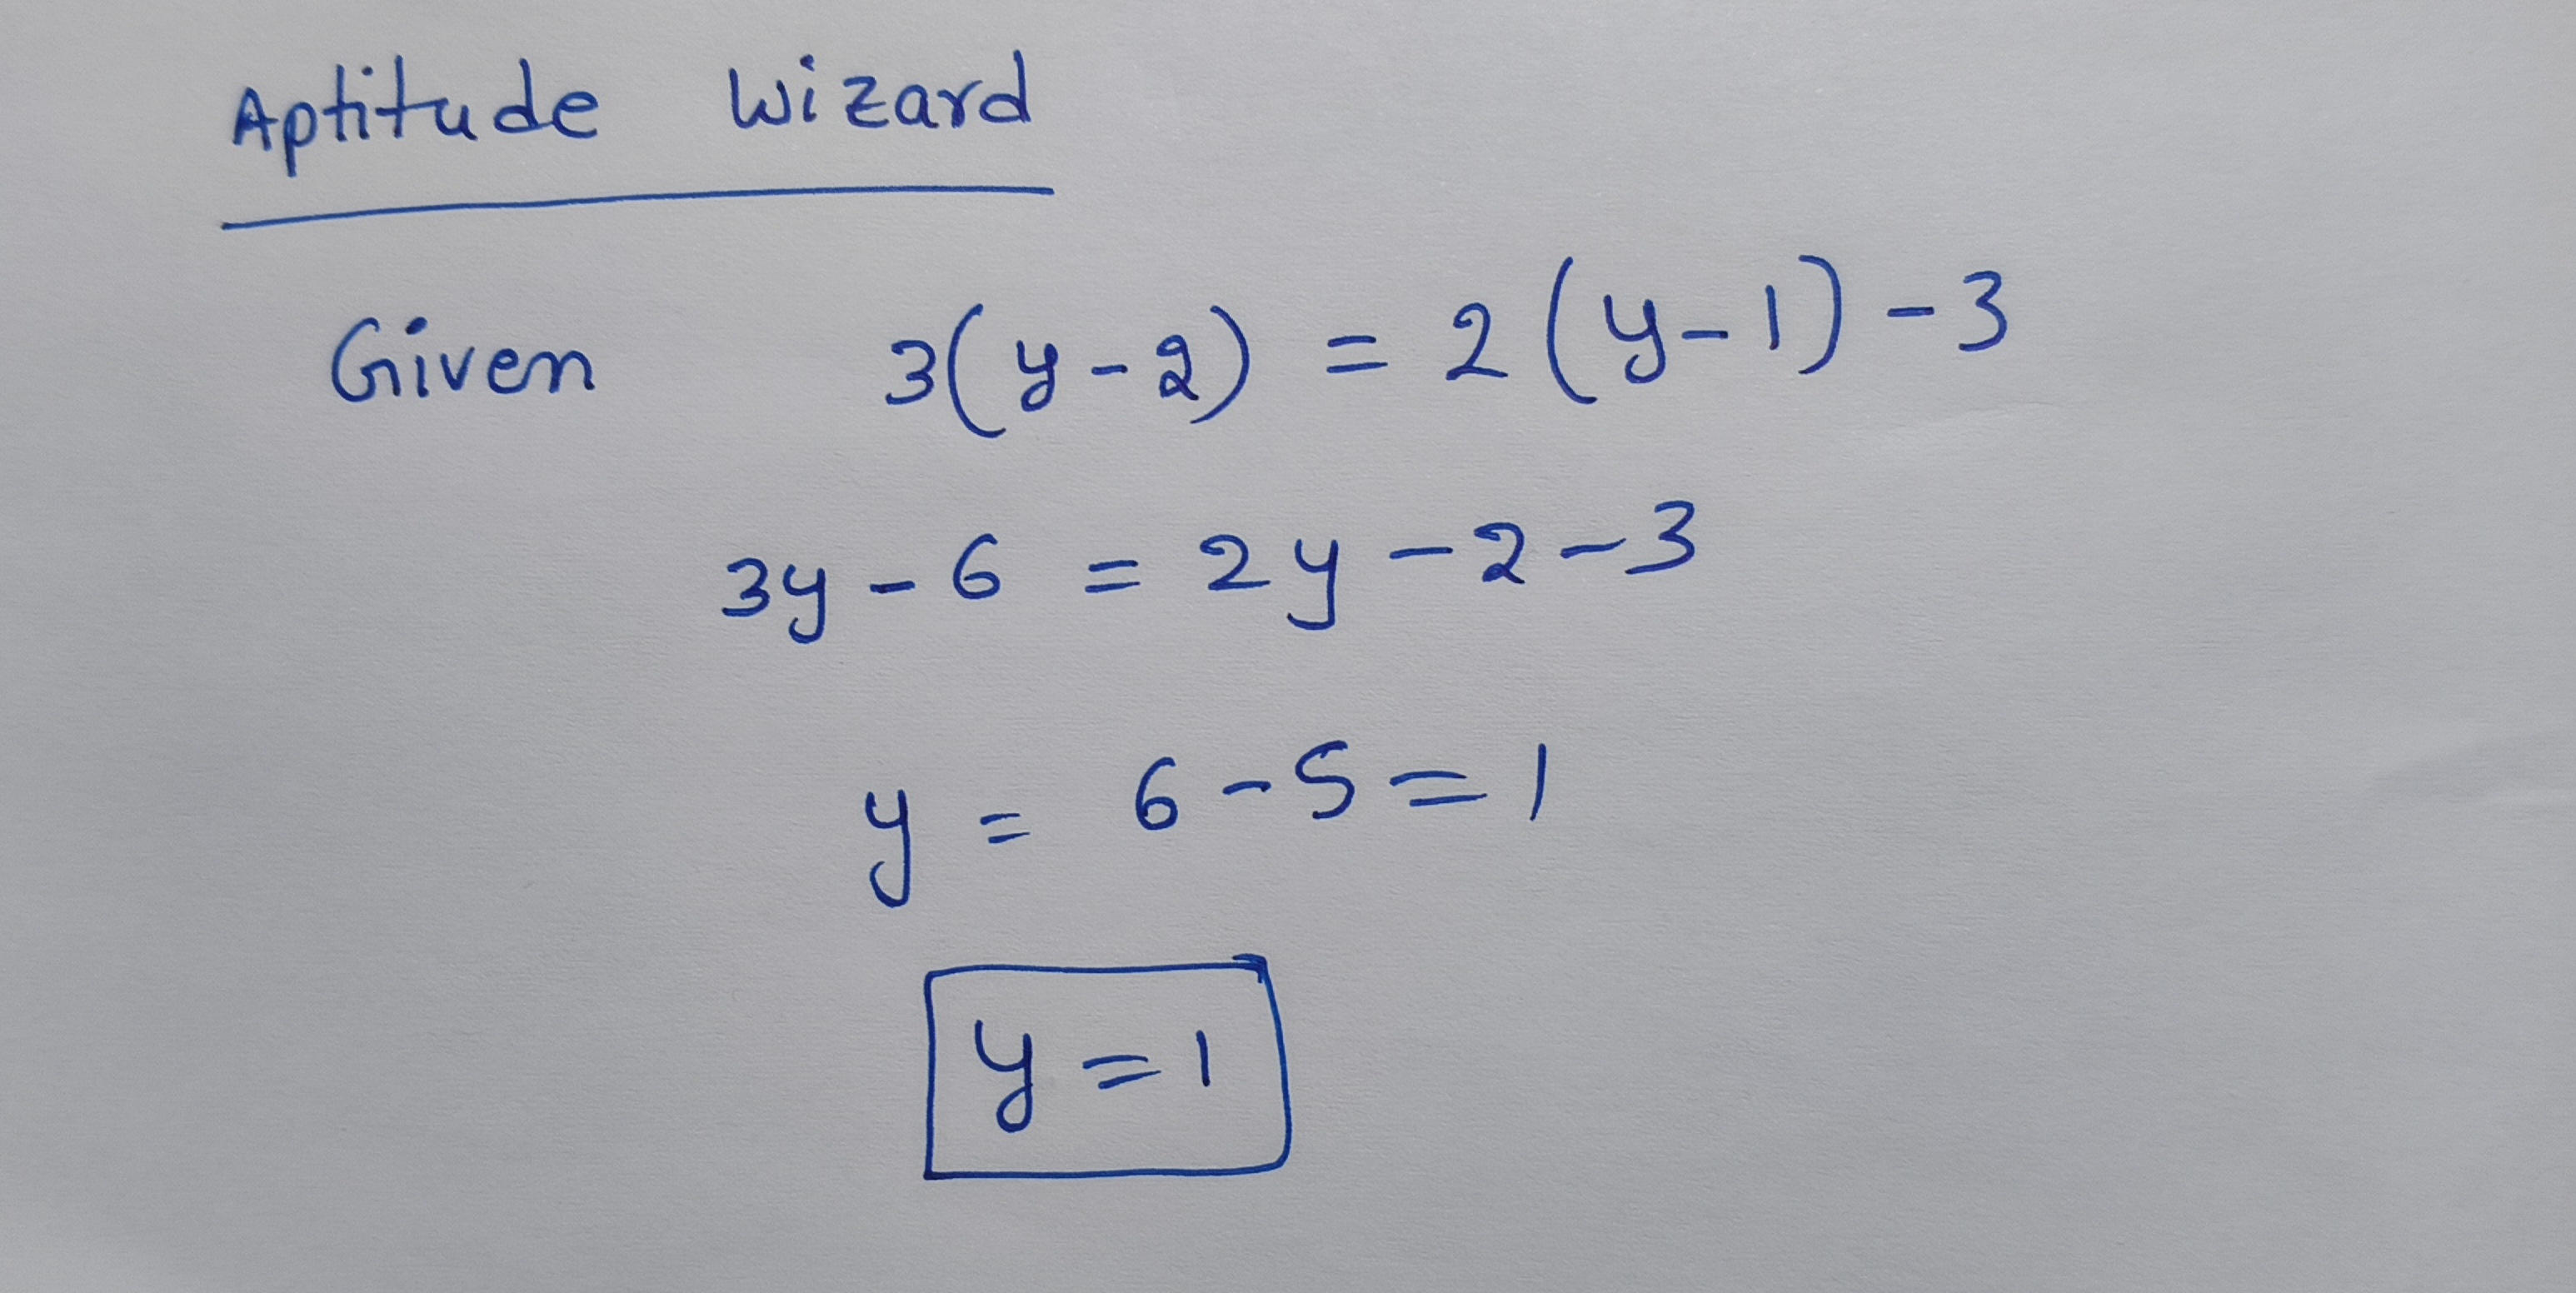 Aptitude Wizard
Given 3(y-2) = 2(y-1)-3
3y-6 = 2y-2-3
y = 6-5=1
y=1